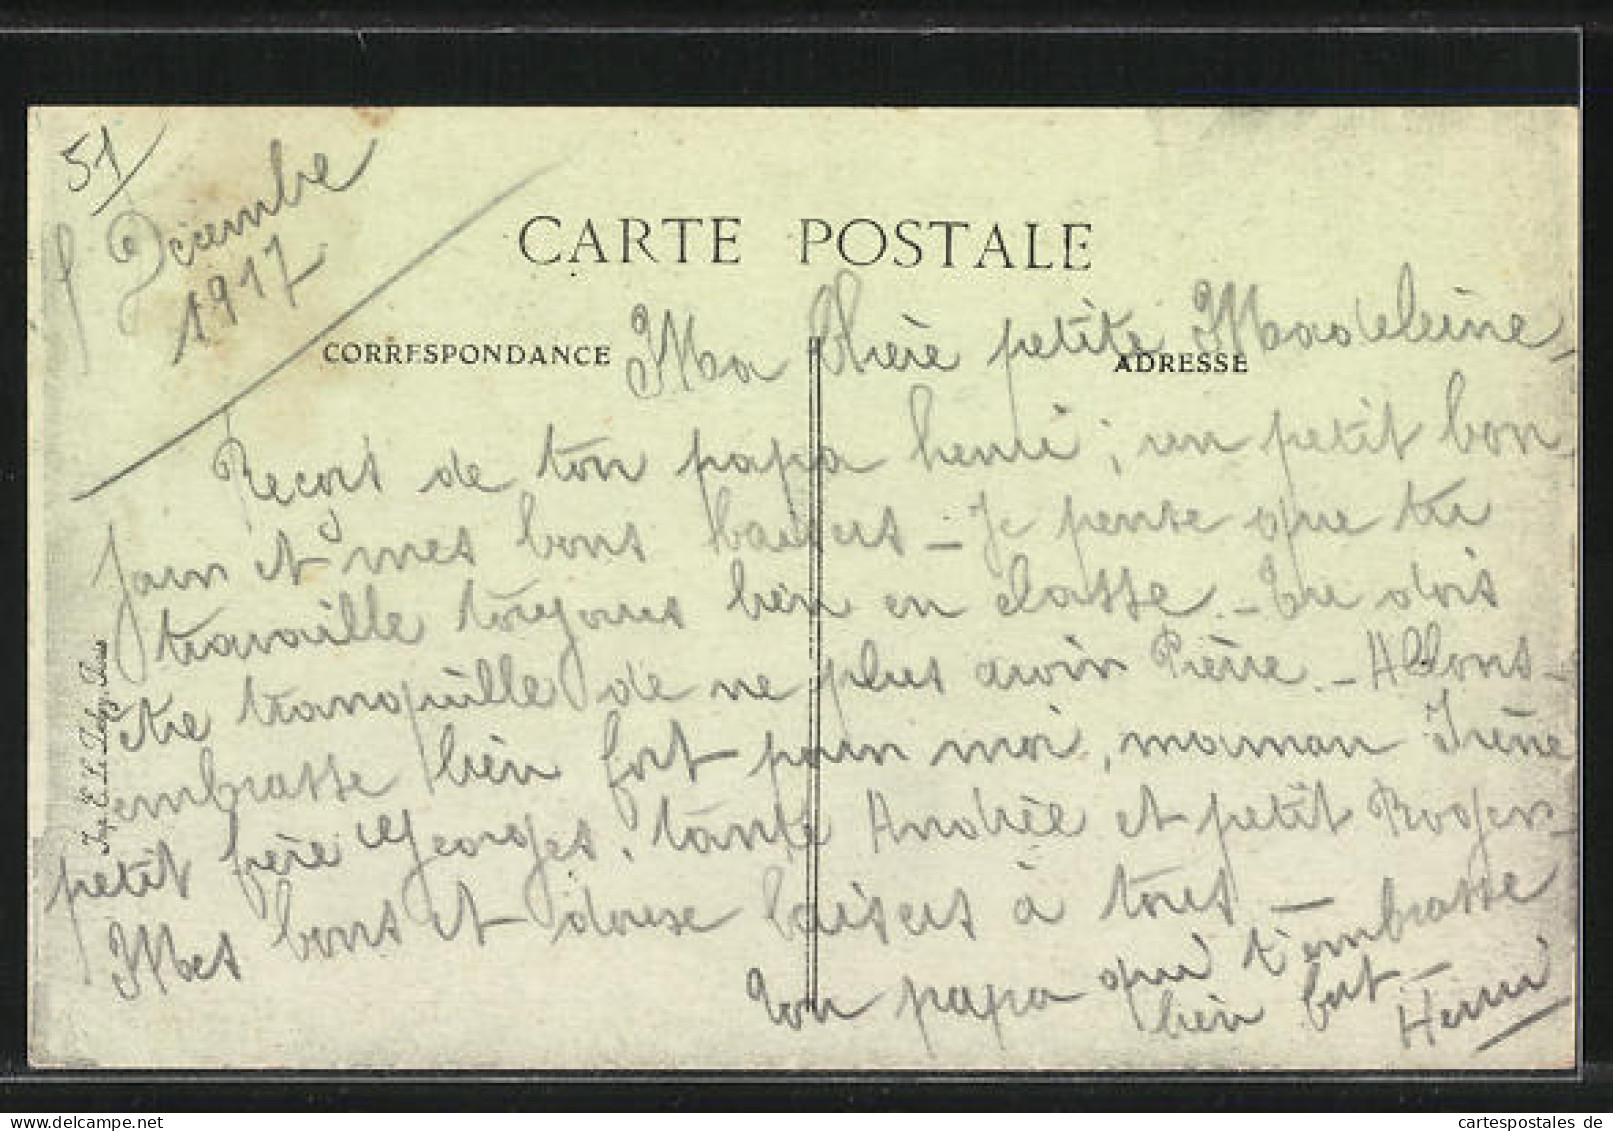 51
Décembre
1917
CARTE POSTALE
CORRESPONDANCE
ADRESSE
Ma Chère petite Madeleine,
Reçois de ton papa henri, un petit bon
jour et mes bons baisers – Je pense que tu
travaille toujours bien en classe. – Tu dois
être tranquille de ne plus avoir Pierre. – Allons –
embrasse bien fort pour moi, maman Irène
petit frère Georges, tante Andrée et petit Roger –
Mes bons et doux baisers à tous –
Ton papa qui t'embrasse
bien fort –
Henri
Imp. E. Le Deley, Paris
cartespostales de